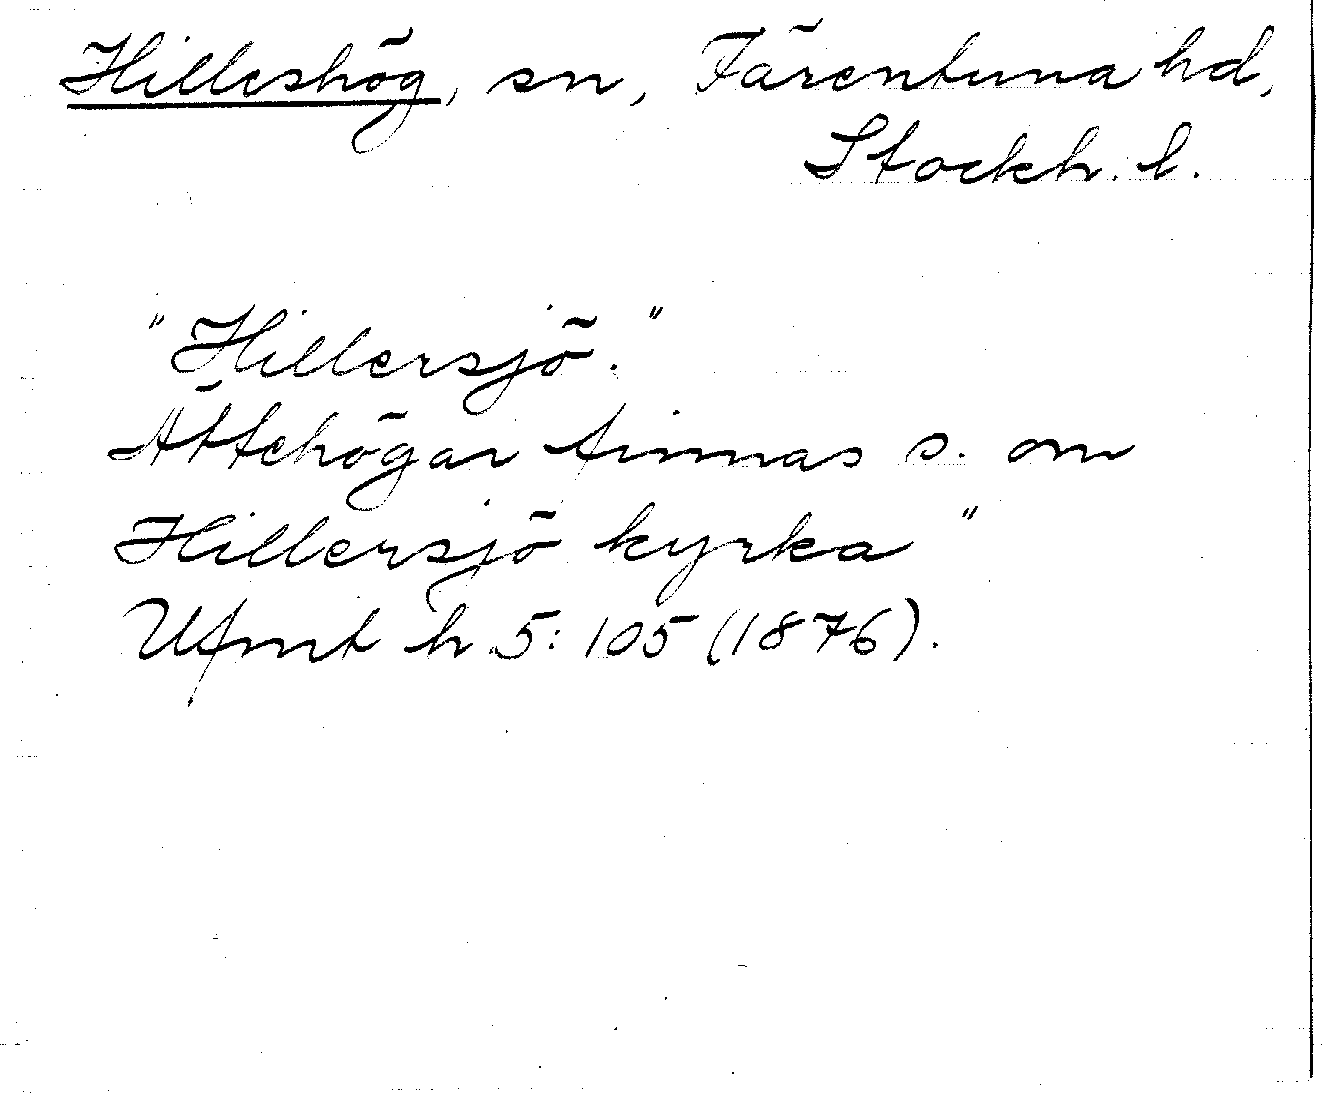 Hilleshög, sn, Färentuna hd,
Stockh. l.
"Hillersjö."
Ättehögar finnas s. om
Hillersjö kyrka"
Ufmt h 5: 105 (1876).